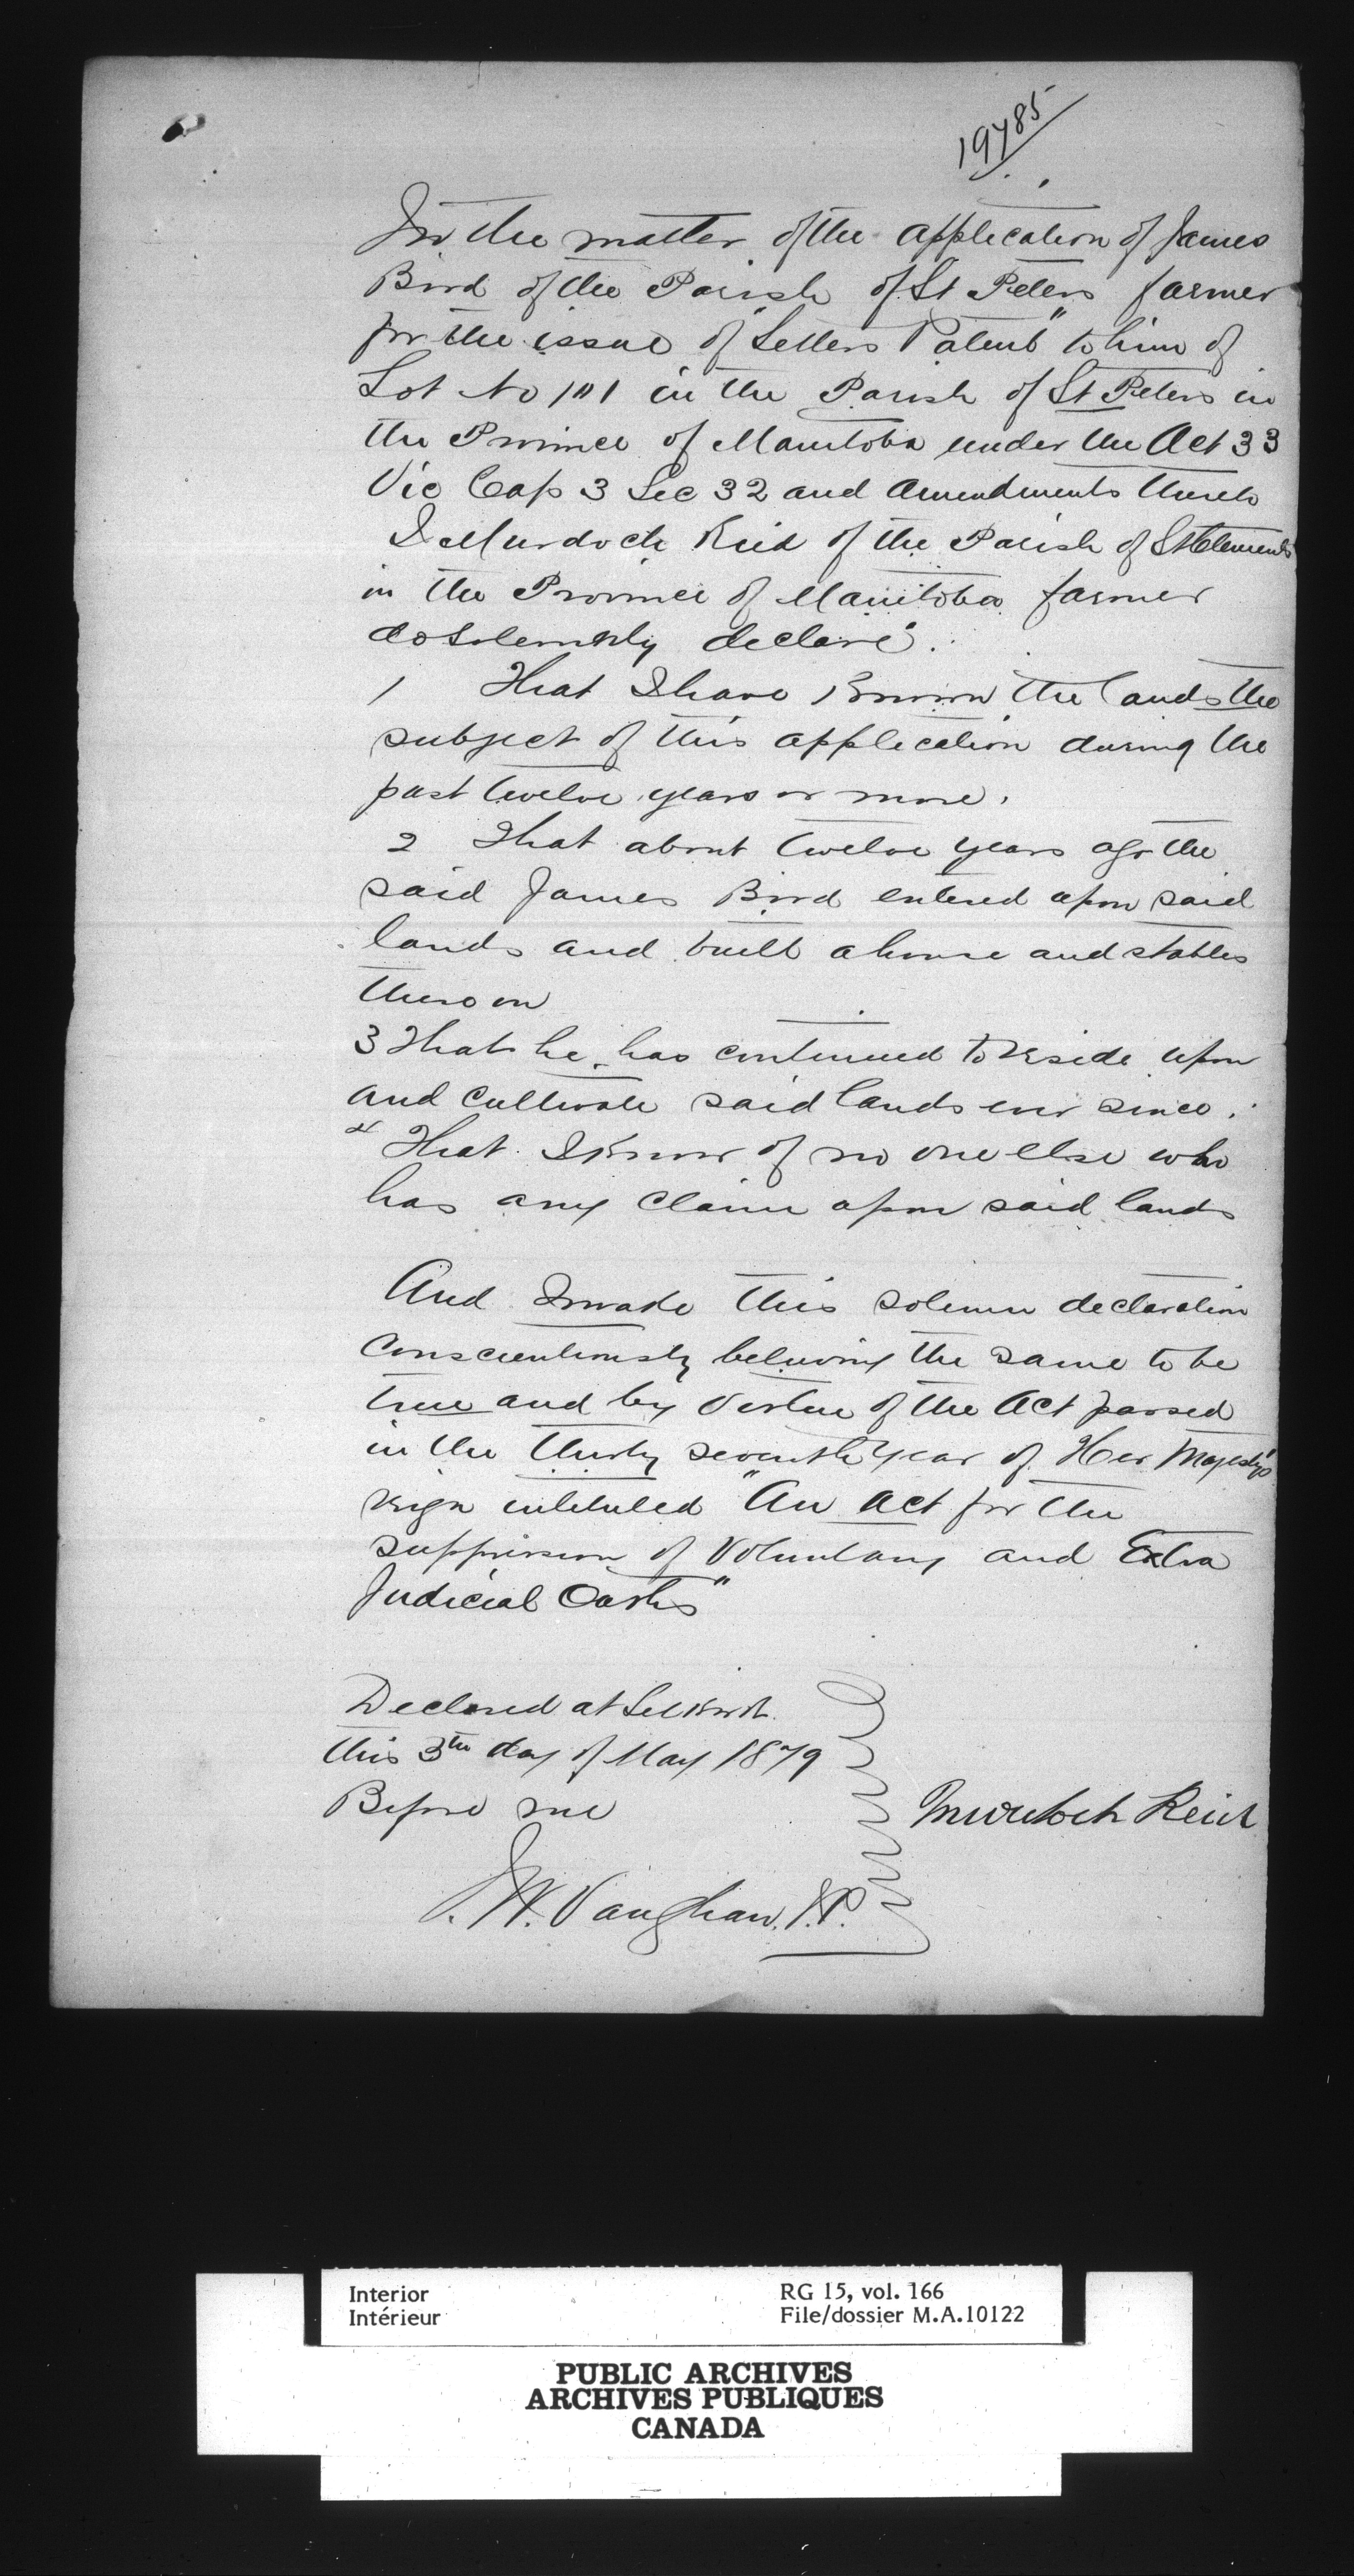 19785
In the matter of the application of James
Bird of the Parish of St Peters farmer
for the issue of "Letters Patent" to him of
Lot No 101 in the Parish of St Peters in
the Province of Manitoba under the Act 33
Vic Cap 3 Sec 32 and Amendments thereto
I Murdoch Reid of the Parish of St Clements
in the Province of Manitoba farmer
do solemnly declare.
1 That I have known the lands the
subject of this application during the
past twelve years or more.
2 That about twelve years ago the
said James Bird entered upon said
lands and built a house and stables
thereon
3 That he has continued to reside upon
and cultivate said lands ever since.
4 That I know of no one else who
has any claim upon said lands
And I make this solemn declaration
conscientiously believing the same to be
true and by virtue of the Act passed
in the thirty seventh year of Her Majesty's
reign intituled "An Act for the
suppression of Voluntary and Extra
Judicial Oaths"
Declared at Selkirk
this 3th day of May 1879
Before me
Murdoch Reid
J. W. Vaughan. J.P.
Interior
Intérieur
RG 15, vol. 166
File/dossier M.A.10122
PUBLIC ARCHIVES
ARCHIVES PUBLIQUES
CANADA